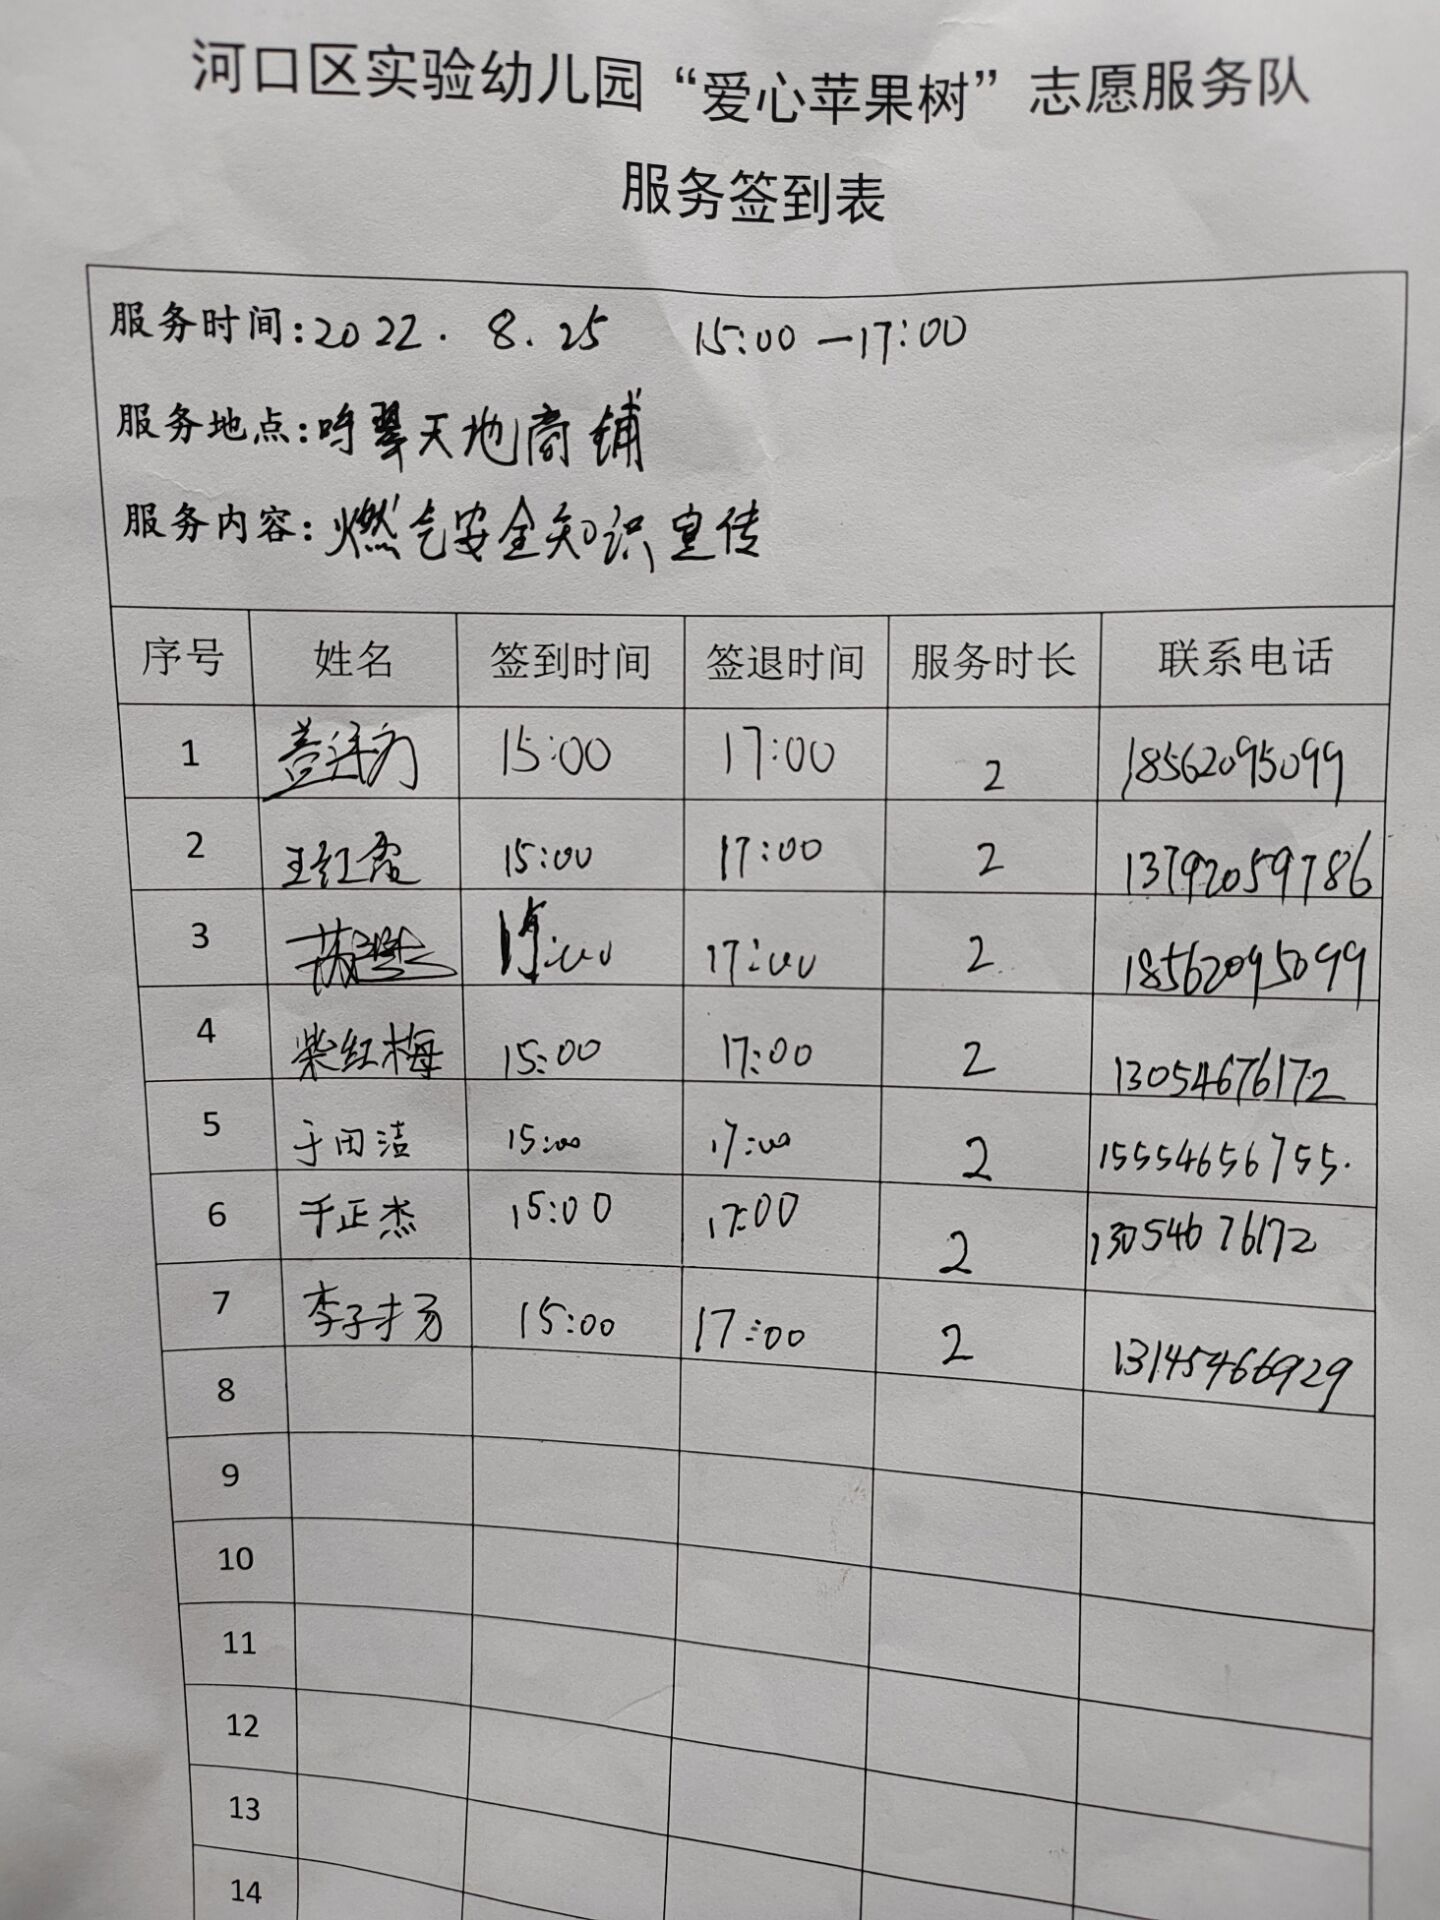 河口区实验幼儿园“爱心苹果树”志愿服务队
服务签到表
服务时间:2022.8.25 15:00—17:00
服务地点:吟翠天地商铺
服务内容:燃气安全知识宣传
序号 姓名 签到时间 签退时间 服务时长 联系电话
1 15:00 17:00 2 18562095099
2 王红霞 15:00 17:00 2 13792059786
3 15:00 17:00 2 18562095099
4 柴红梅 15:00 17:00 2 13054676172
5 于田洁 15:00 17:00 2 15554656755.
6 于正杰 15:00 17:00 2 13054676172
7 李子扬 15:00 17:00 2 13145466929
8
9
10
11
12
13
14